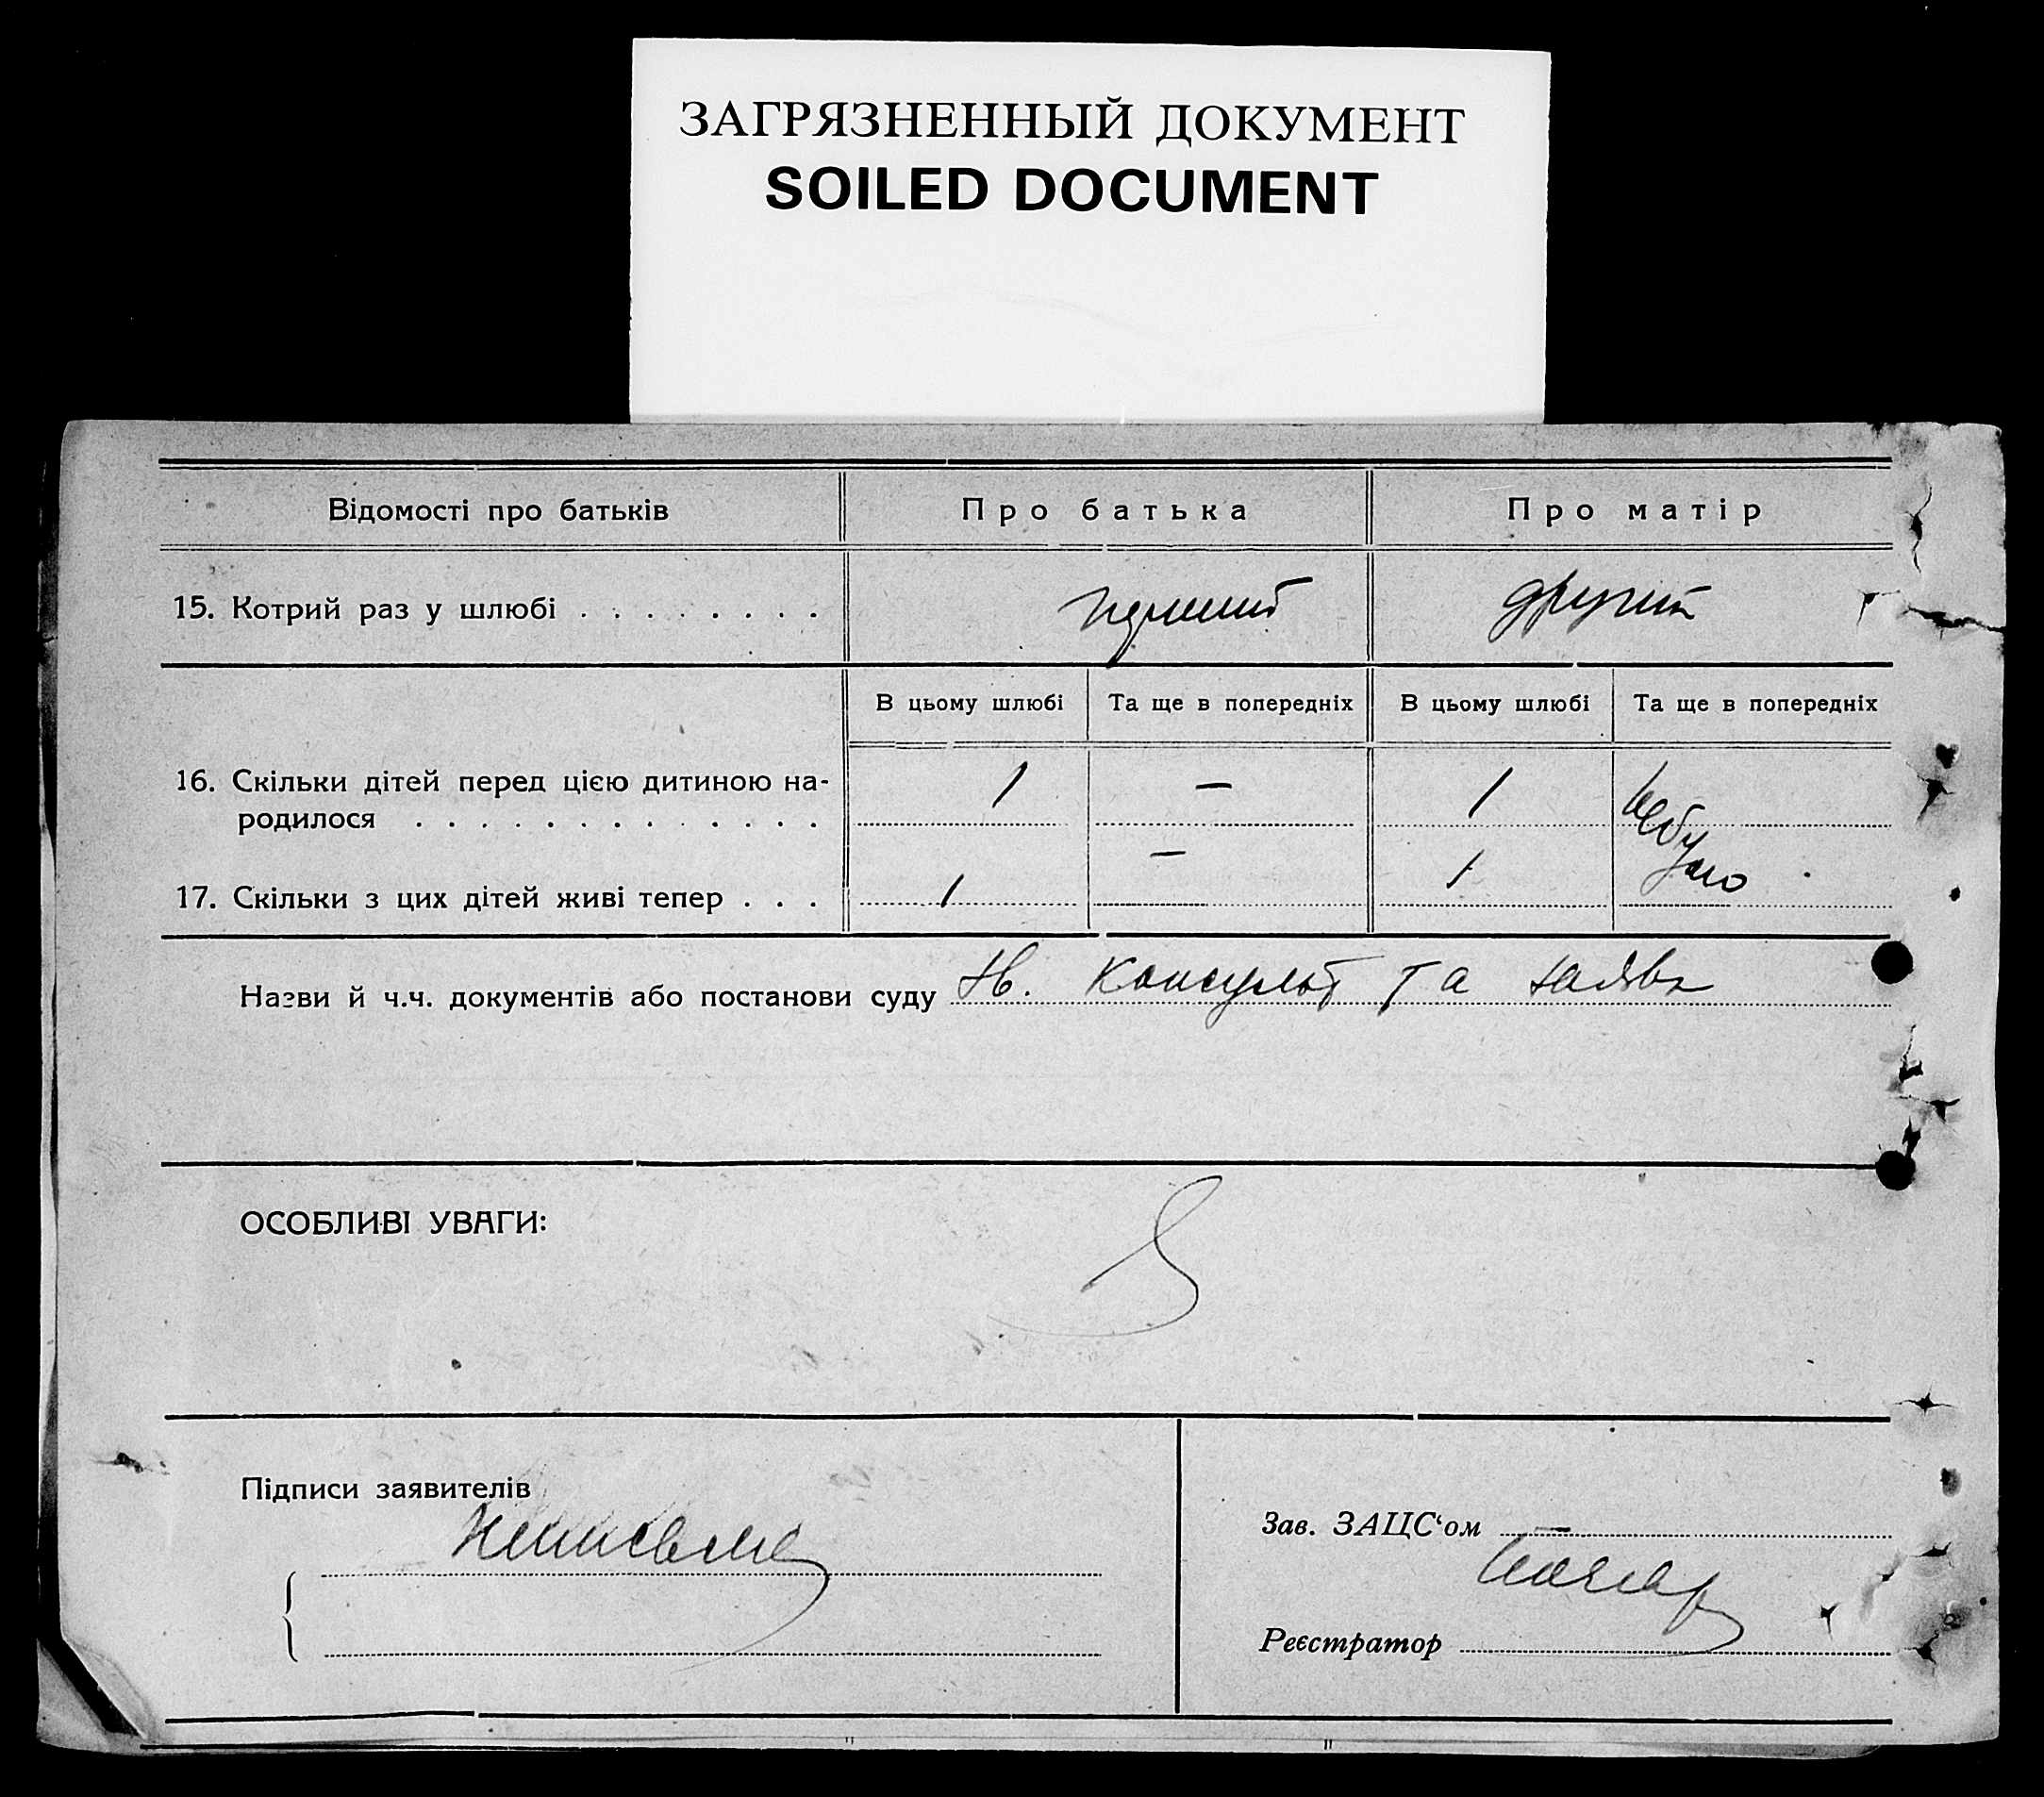 ЗАГРЯЗНЕННЫЙ ДОКУМЕНТ
SOILED DOCUMENT
Відомості про батьків Про батька Про матір
15. Котрий раз у шлюбі . . . . . . . . перший другий
В цьому шлюбі Та ще в попередніх В цьому шлюбі Та ще в попередніх
16. Скільки дітей перед цією дитиною на-
родилося . . . . . . . . . . . . . 1 — 1 не було
17. Скільки з цих дітей живі тепер . . . 1 — 1
Назви й ч.ч. документів або постанови суду консульт та заява
ОСОБЛИВІ УВАГИ:
Підписи заявителів
Зав. ЗАЦС‘ом —
Реєстратор